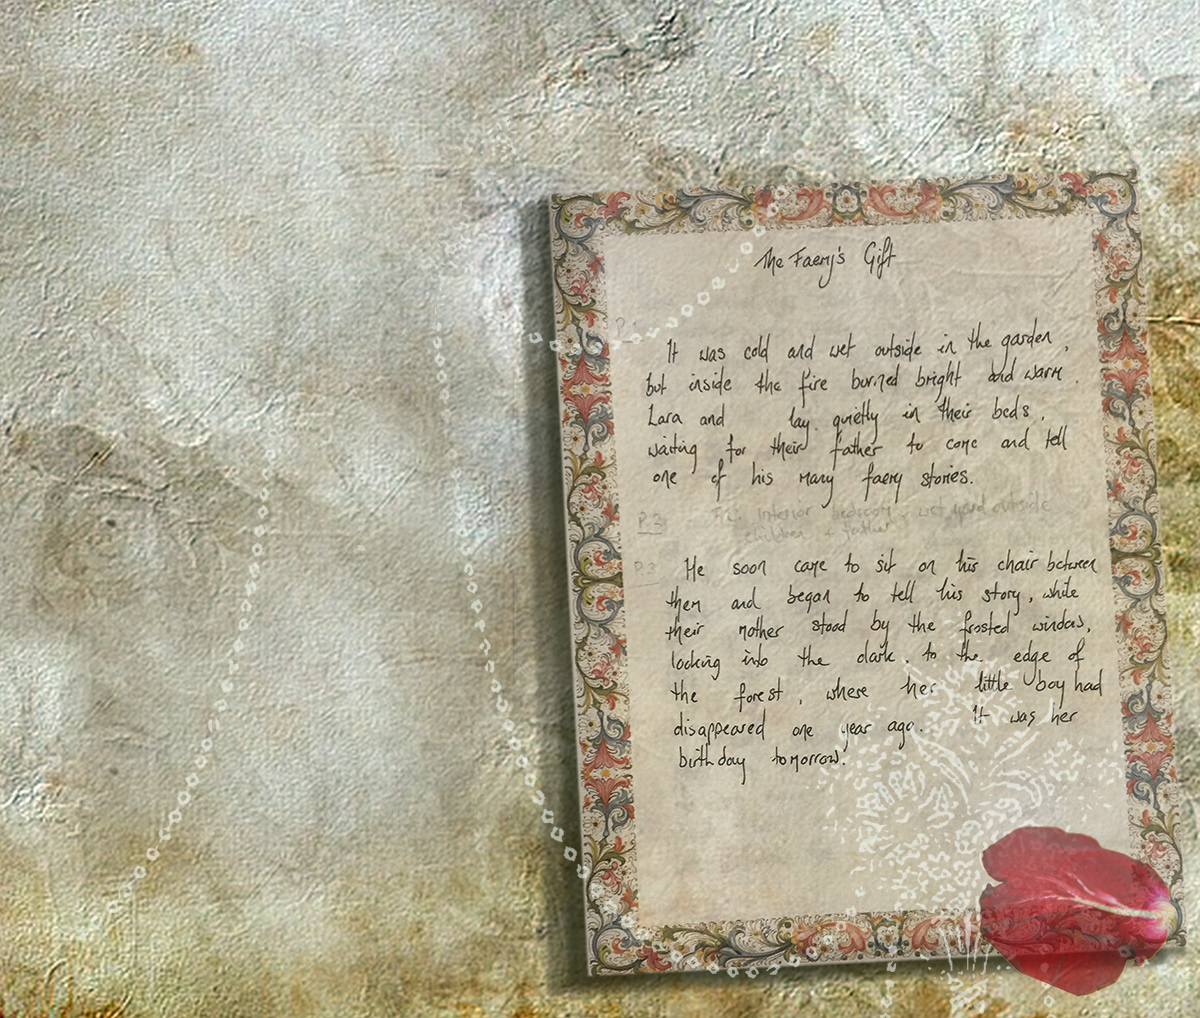 The Faery's Gift
P.
It was cold and wet outside in the garden,
but inside the fire burned bright and warm.
Lara and lay quietly in their beds,
waiting for their father to come and tell
one of his many faery stories.
P.3 interior bedroom, wet yard outside
children + father
P.3 He soon came to sit on his chair between
them and began to tell his story, while
their mother stood by the frosted window,
looking into the dark, to the edge of
the forest, where her little boy had
disappeared one year ago. It was her
birthday tomorrow.